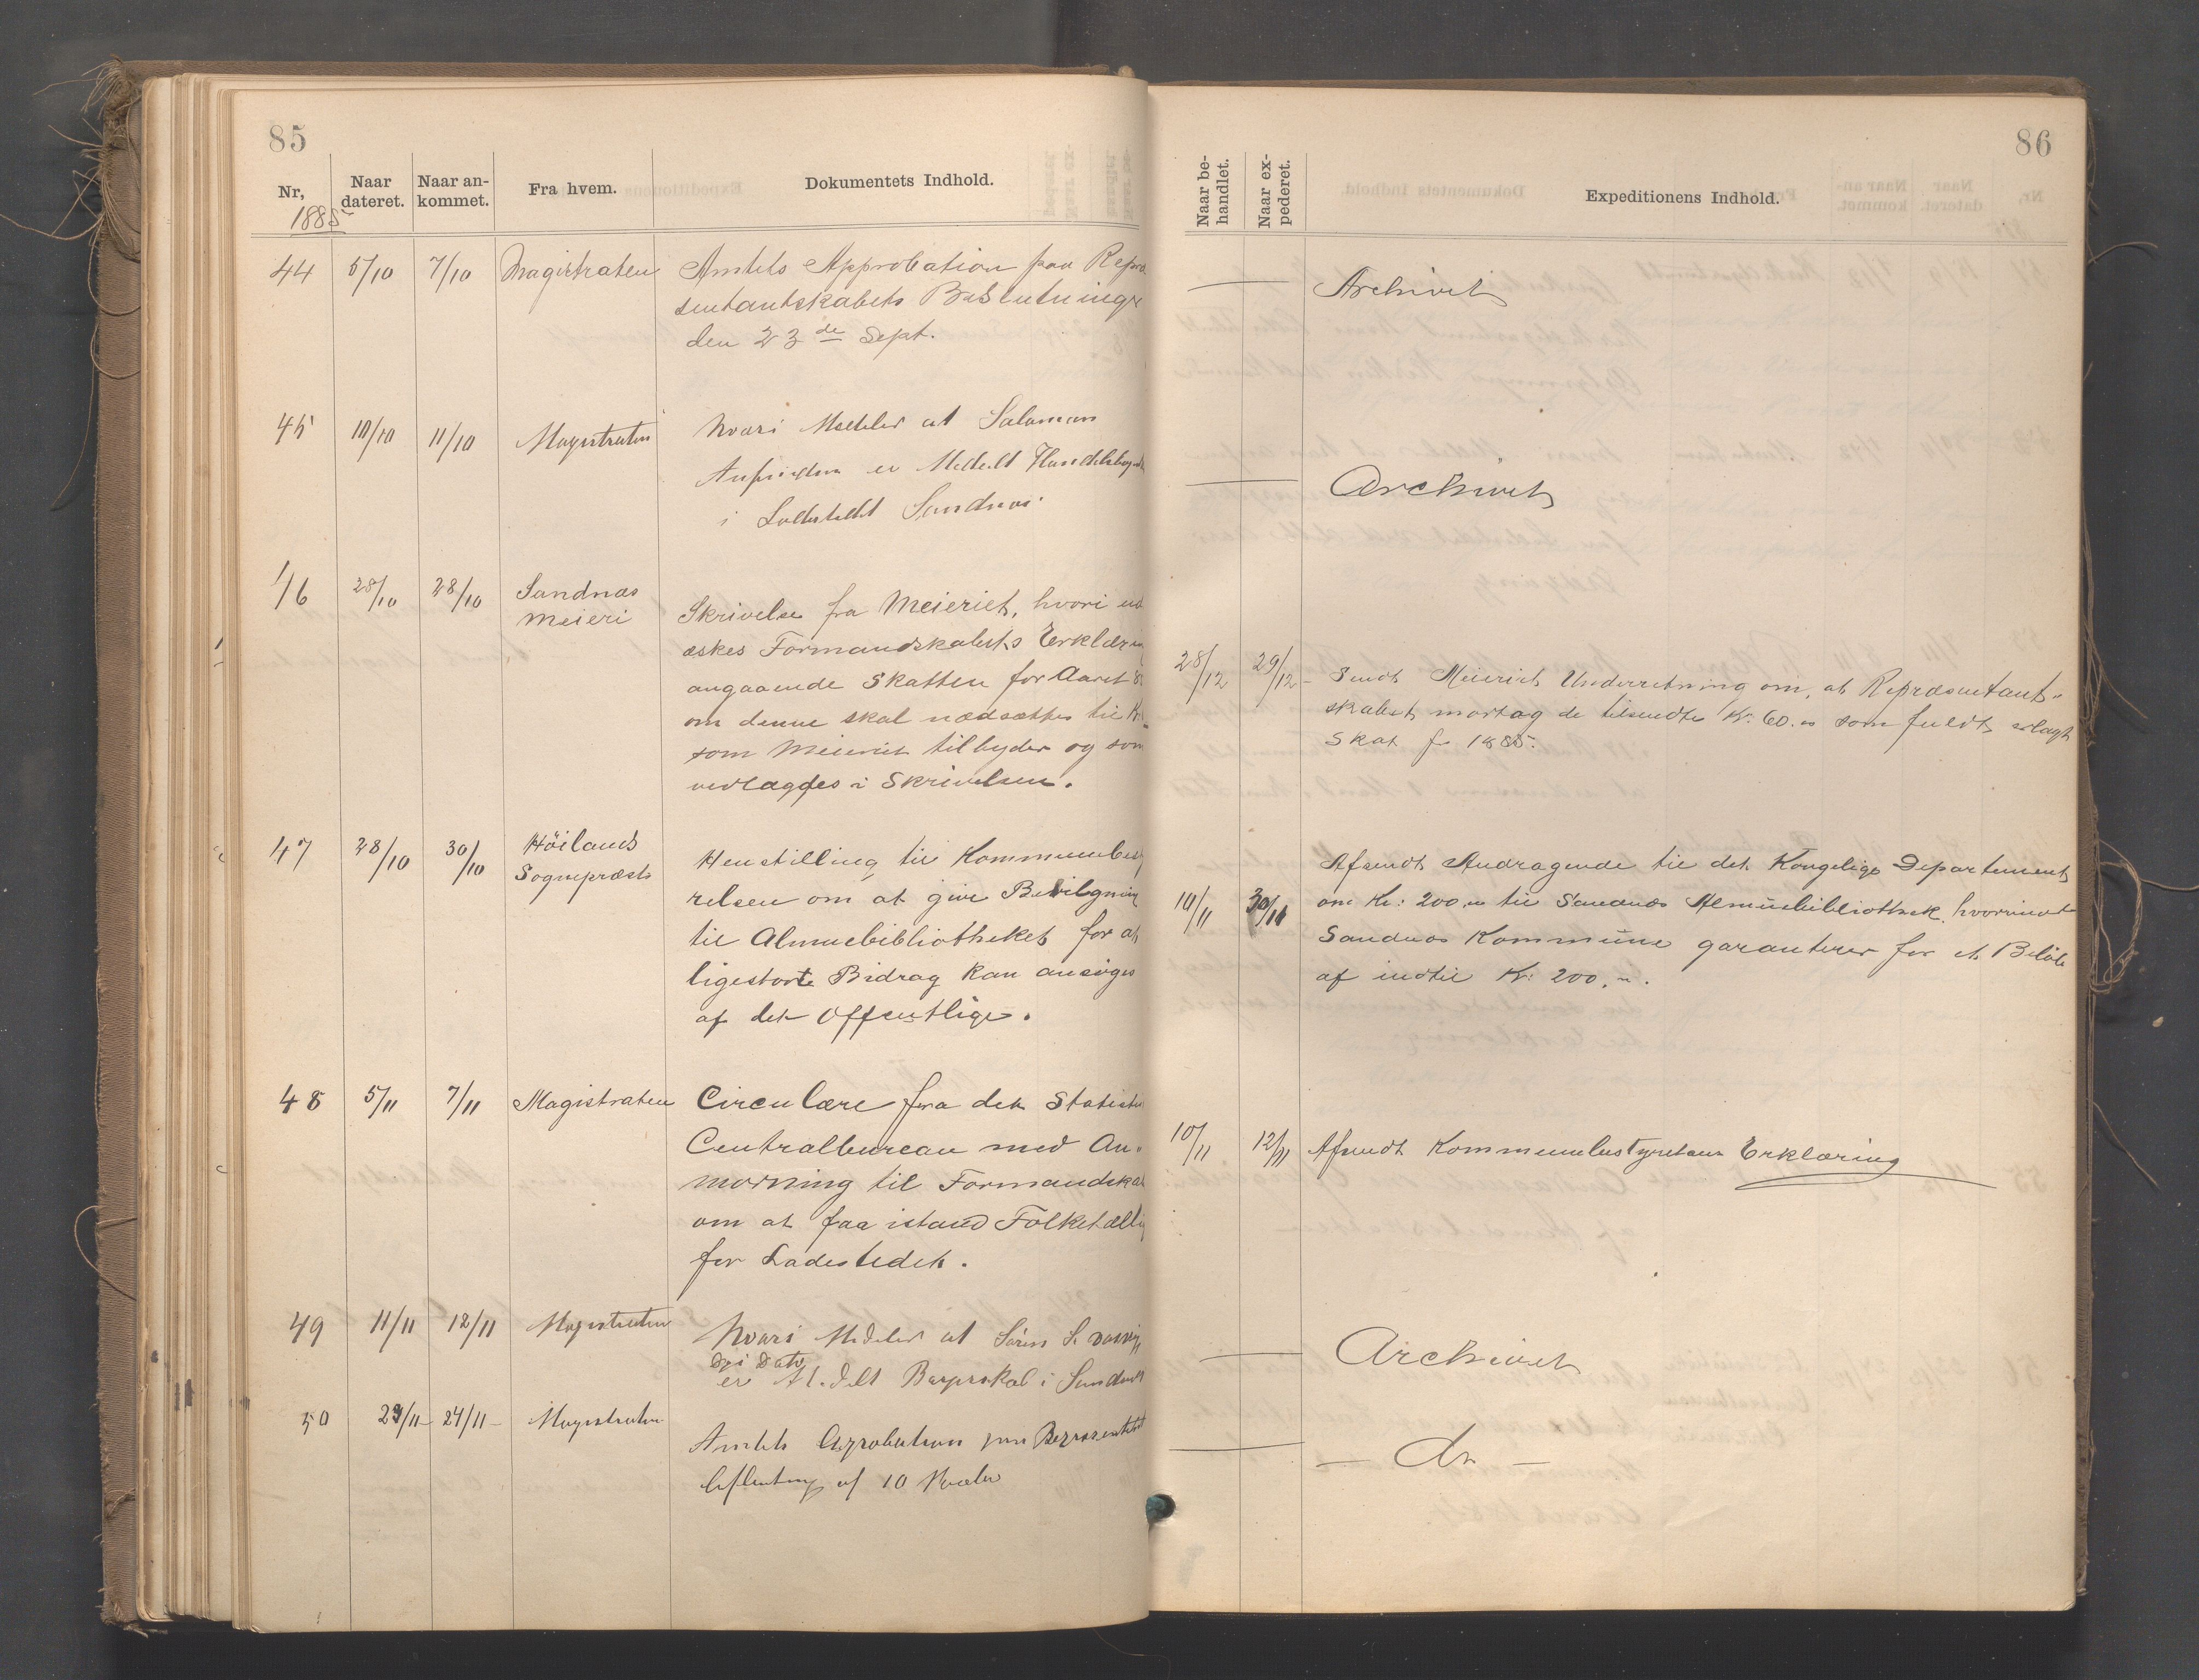 85
Nr,
Naar
dateret.
Naar an-
kommet.
Fra hvem.
Dokumentets Indhold.
1885
44 5/10 7/10 Magistraten Amtets Approbation paa Repræ
sentantskabets Beslutninger
den 23de Sept.
45 10/10 11/10 Magistraten hvori Meddeles at Salamon
er Meddelt
i Ladestedet Sandnæs
46 28/10 28/10 Sandnæs
Meieri
Skrivelse fra Meieriet, hvori ud
æskes Formandskabets Erklæring
angaaende Skatten for Aaret
om denne skal nedsættes til Kr
som Meieriet tilbyder og som
vedlagdes i Skrivelsen.
47 28/10 30/10 Höilands
Sognepræst
Henstilling til Kommunebesty
relsen om at give Bevilgning
til Almuebibliotheket for at
ligestort Bidrag kan ansöges
af det Offentlige.
48 5/11 7/11 Magistraten Circulære fra det Statistiske
Centralbureau med An-
modning til Formandskab
om at faa istand Folketælling
for Ladestedet.
49 11/11 12/11 Magistraten hvori Meddeles at Sören S.
Dato
er Meddelt i Sandnæs
50 23/11 24/11 Magistraten Amtets Approbation paa
beslutning af 10
86
Naar be-
handlet.
Naar ex-
pederet.
Expeditionens Indhold.
Archivet
Archivet
28/12 29/12 Sendt Meieriet Underretning om, at Repræsentant-
skabet modtog de tilsendte Kr. 60.00 som fuldt erlagt
Skat for 1885.
10/11 30/11 Afsendt Andragende til det Kongelige Departement
om Kr: 200.00 til Sandnæs Almuebibliothek, hvorimod
Sandnæs Kommune garanterer for et Belöb
af indtil Kr: 200,00.
10/11 12/11 Afsendt Kommunebestyrelsens Erklæring
Archivet
— do —